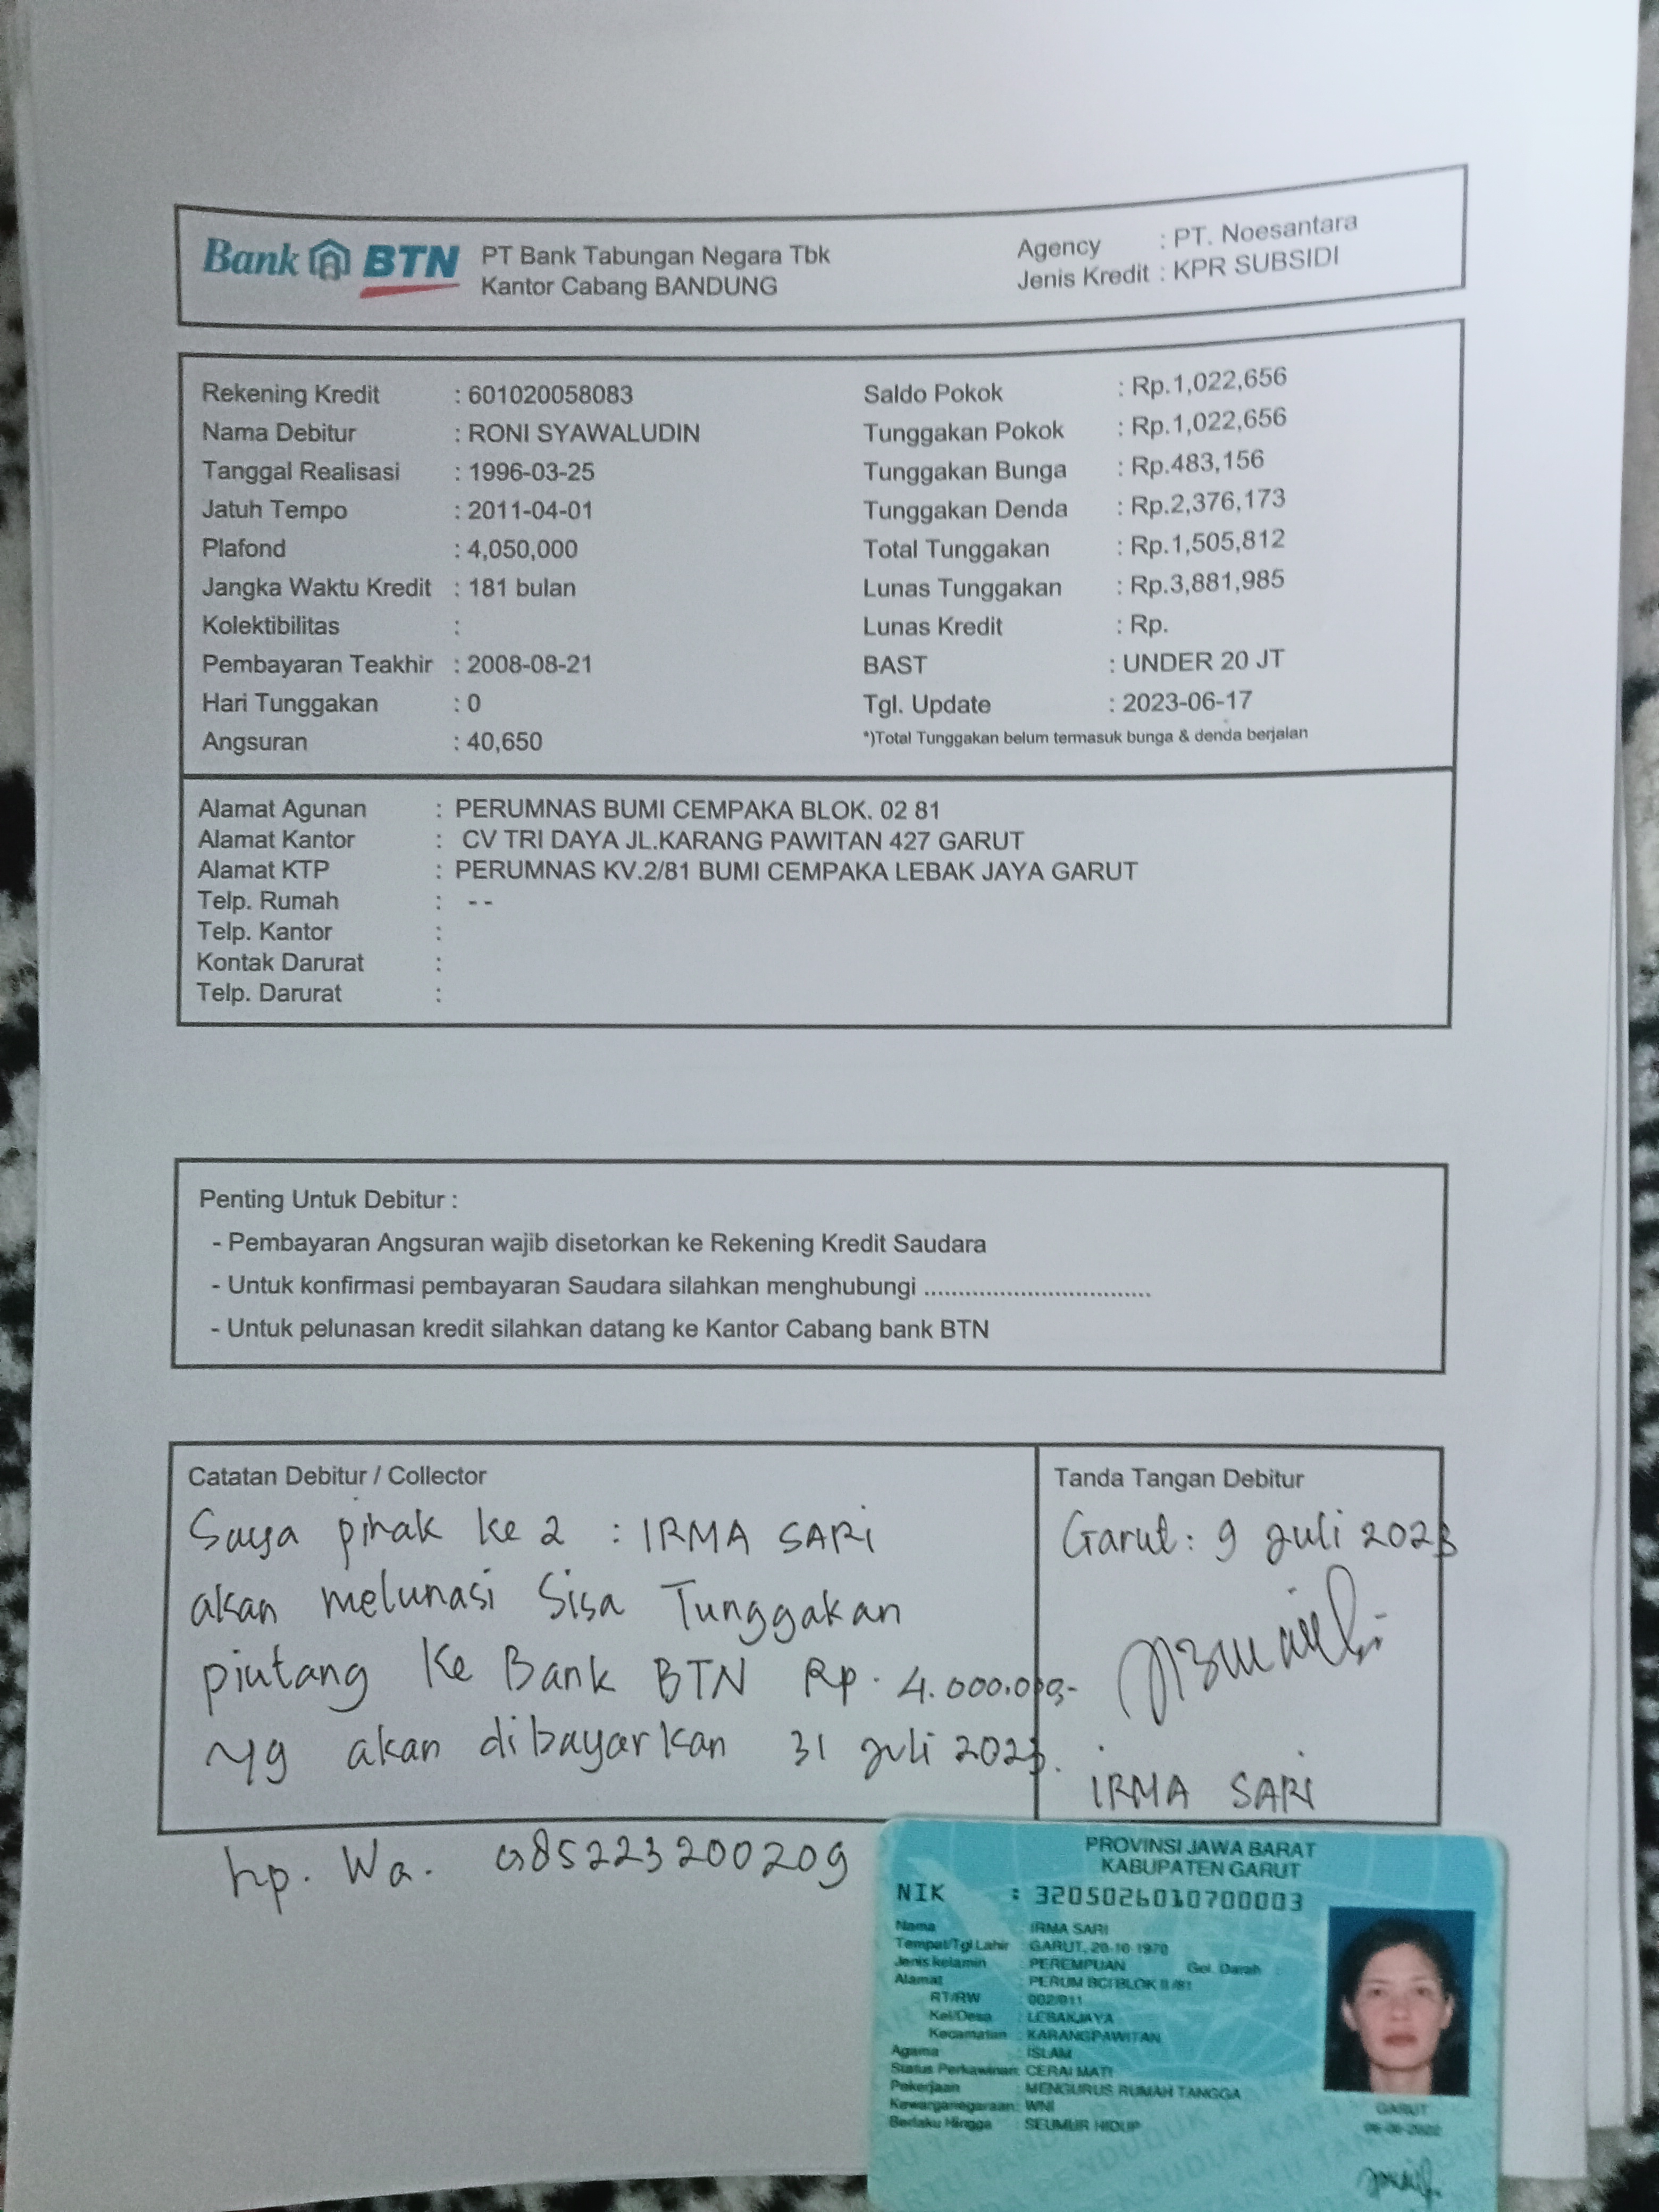 Bank BTN PT Bank Tabungan Negara Tbk
Kantor Cabang BANDUNG
Agency : PT. Noesantara
Jenis Kredit : KPR SUBSIDI
Rekening Kredit : 601020058083
Nama Debitur : RONI SYAWALUDIN
Tanggal Realisasi : 1996-03-25
Jatuh Tempo : 2011-04-01
Plafond : 4,050,000
Jangka Waktu Kredit : 181 bulan
Kolektibilitas :
Pembayaran Teakhir : 2008-08-21
Hari Tunggakan : 0
Angsuran : 40,650
Saldo Pokok : Rp.1,022,656
Tunggakan Pokok : Rp.1,022,656
Tunggakan Bunga : Rp.483,156
Tunggakan Denda : Rp.2,376,173
Total Tunggakan : Rp.1,505,812
Lunas Tunggakan : Rp.3,881,985
Lunas Kredit : Rp.
BAST : UNDER 20 JT
Tgl. Update : 2023-06-17
*)Total Tunggakan belum termasuk bunga & denda berjalan
Alamat Agunan : PERUMNAS BUMI CEMPAKA BLOK. 02 81
Alamat Kantor : CV TRI DAYA JL.KARANG PAWITAN 427 GARUT
Alamat KTP : PERUMNAS KV.2/81 BUMI CEMPAKA LEBAK JAYA GARUT
Telp. Rumah : --
Telp. Kantor :
Kontak Darurat :
Telp. Darurat :
Penting Untuk Debitur :
- Pembayaran Angsuran wajib disetorkan ke Rekening Kredit Saudara
- Untuk konfirmasi pembayaran Saudara silahkan menghubungi ................................
- Untuk pelunasan kredit silahkan datang ke Kantor Cabang bank BTN
Catatan Debitur / Collector
Saya pihak ke 2 : IRMA SARI
akan melunasi Sisa Tunggakan
piutang ke Bank BTN Rp. 4.000.000-
yg akan dibayarkan 31 Juli 2023.
Tanda Tangan Debitur
Garut : 9 Juli 2023
IRMA SARI
hp. Wa. 085223200209
PROVINSI JAWA BARAT
KABUPATEN GARUT
NIK : 3205026010700003
Nama : IRMA SARI
Tempat/Tgl Lahir : GARUT, 20-10-1970
Jenis kelamin : PEREMPUAN Gol. Darah :
Alamat : PERUM BCI BLOK II /81
RT/RW : 002/011
Kel/Desa : LEBAKJAYA
Kecamatan : KARANGPAWITAN
Agama : ISLAM
Status Perkawinan: CERAI MATI
Pekerjaan : MENGURUS RUMAH TANGGA
Kewarganegaraan: WNI
Berlaku Hingga : SEUMUR HIDUP
GARUT